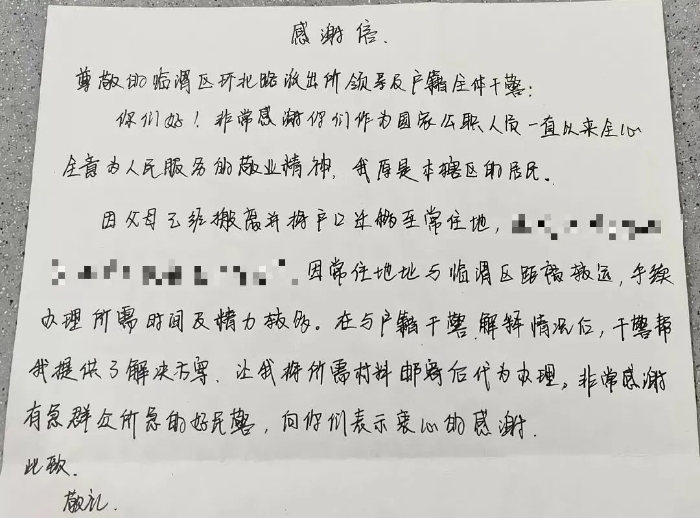 感谢信.
尊敬的临渭区环北路派出所领导及户籍全体干警:
你们好！非常感谢你们作为国家公职人员一直以来全心
全意为人民服务的敬业精神，我原是本辖区的居民。
因父母已经搬离并将户口迁移至常住地，
因常住地址与临渭区距离较远，手续
办理所需时间及精力较多。在与户籍干警解释情况后，干警帮
我提供了解决方案、让我将所需材料邮寄后代为办理。非常感谢
有急群众所急的好民警，向你们表示衷心的感谢.
此致.
敬礼.